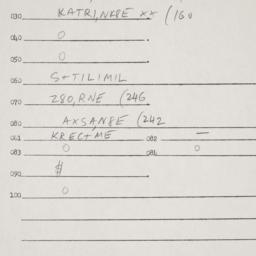 030 KATRI,NK8E ** (160
040 0
050 0
060 S+TILIMIL
070 280,RNE (246
080 AXSAN8E (242
081 KREC+ME 082 —
083 0 084 0
090 $
100 0